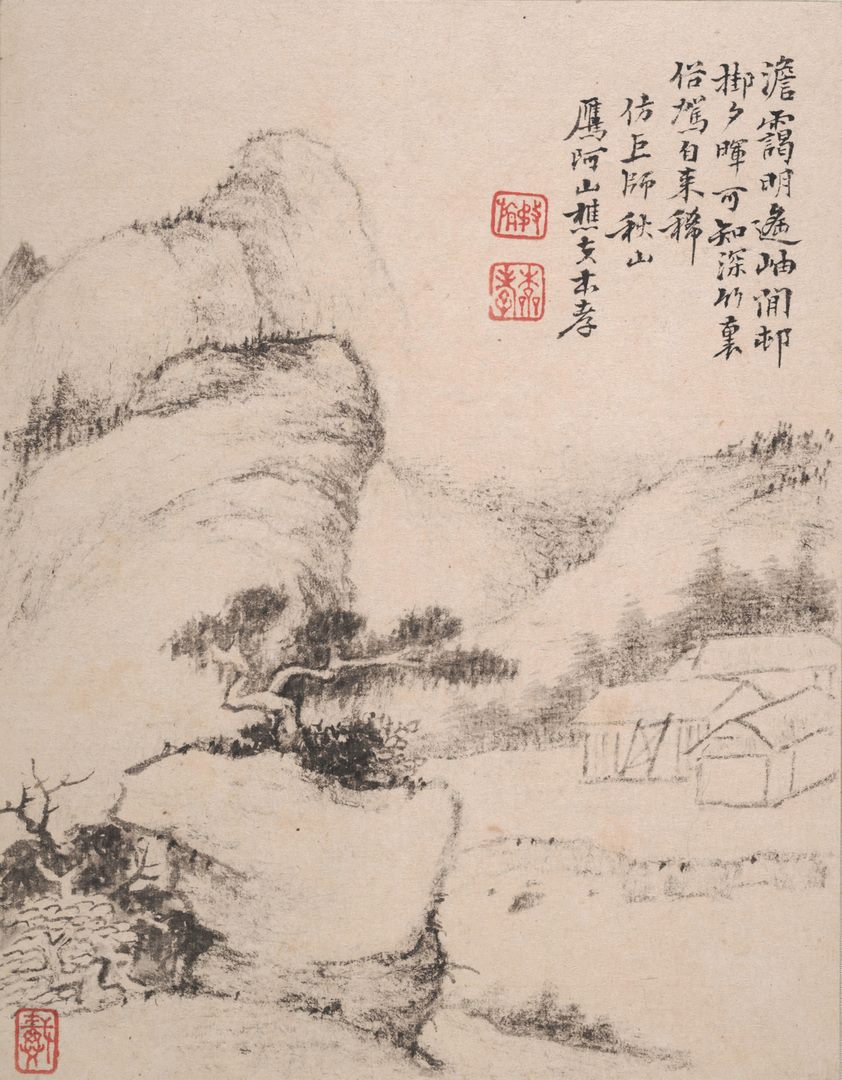 澹靄明遙岫閒邨
掛夕暉可知深竹裏
俗駕自来稀
仿巨師秋山
鷹阿山樵戴本孝